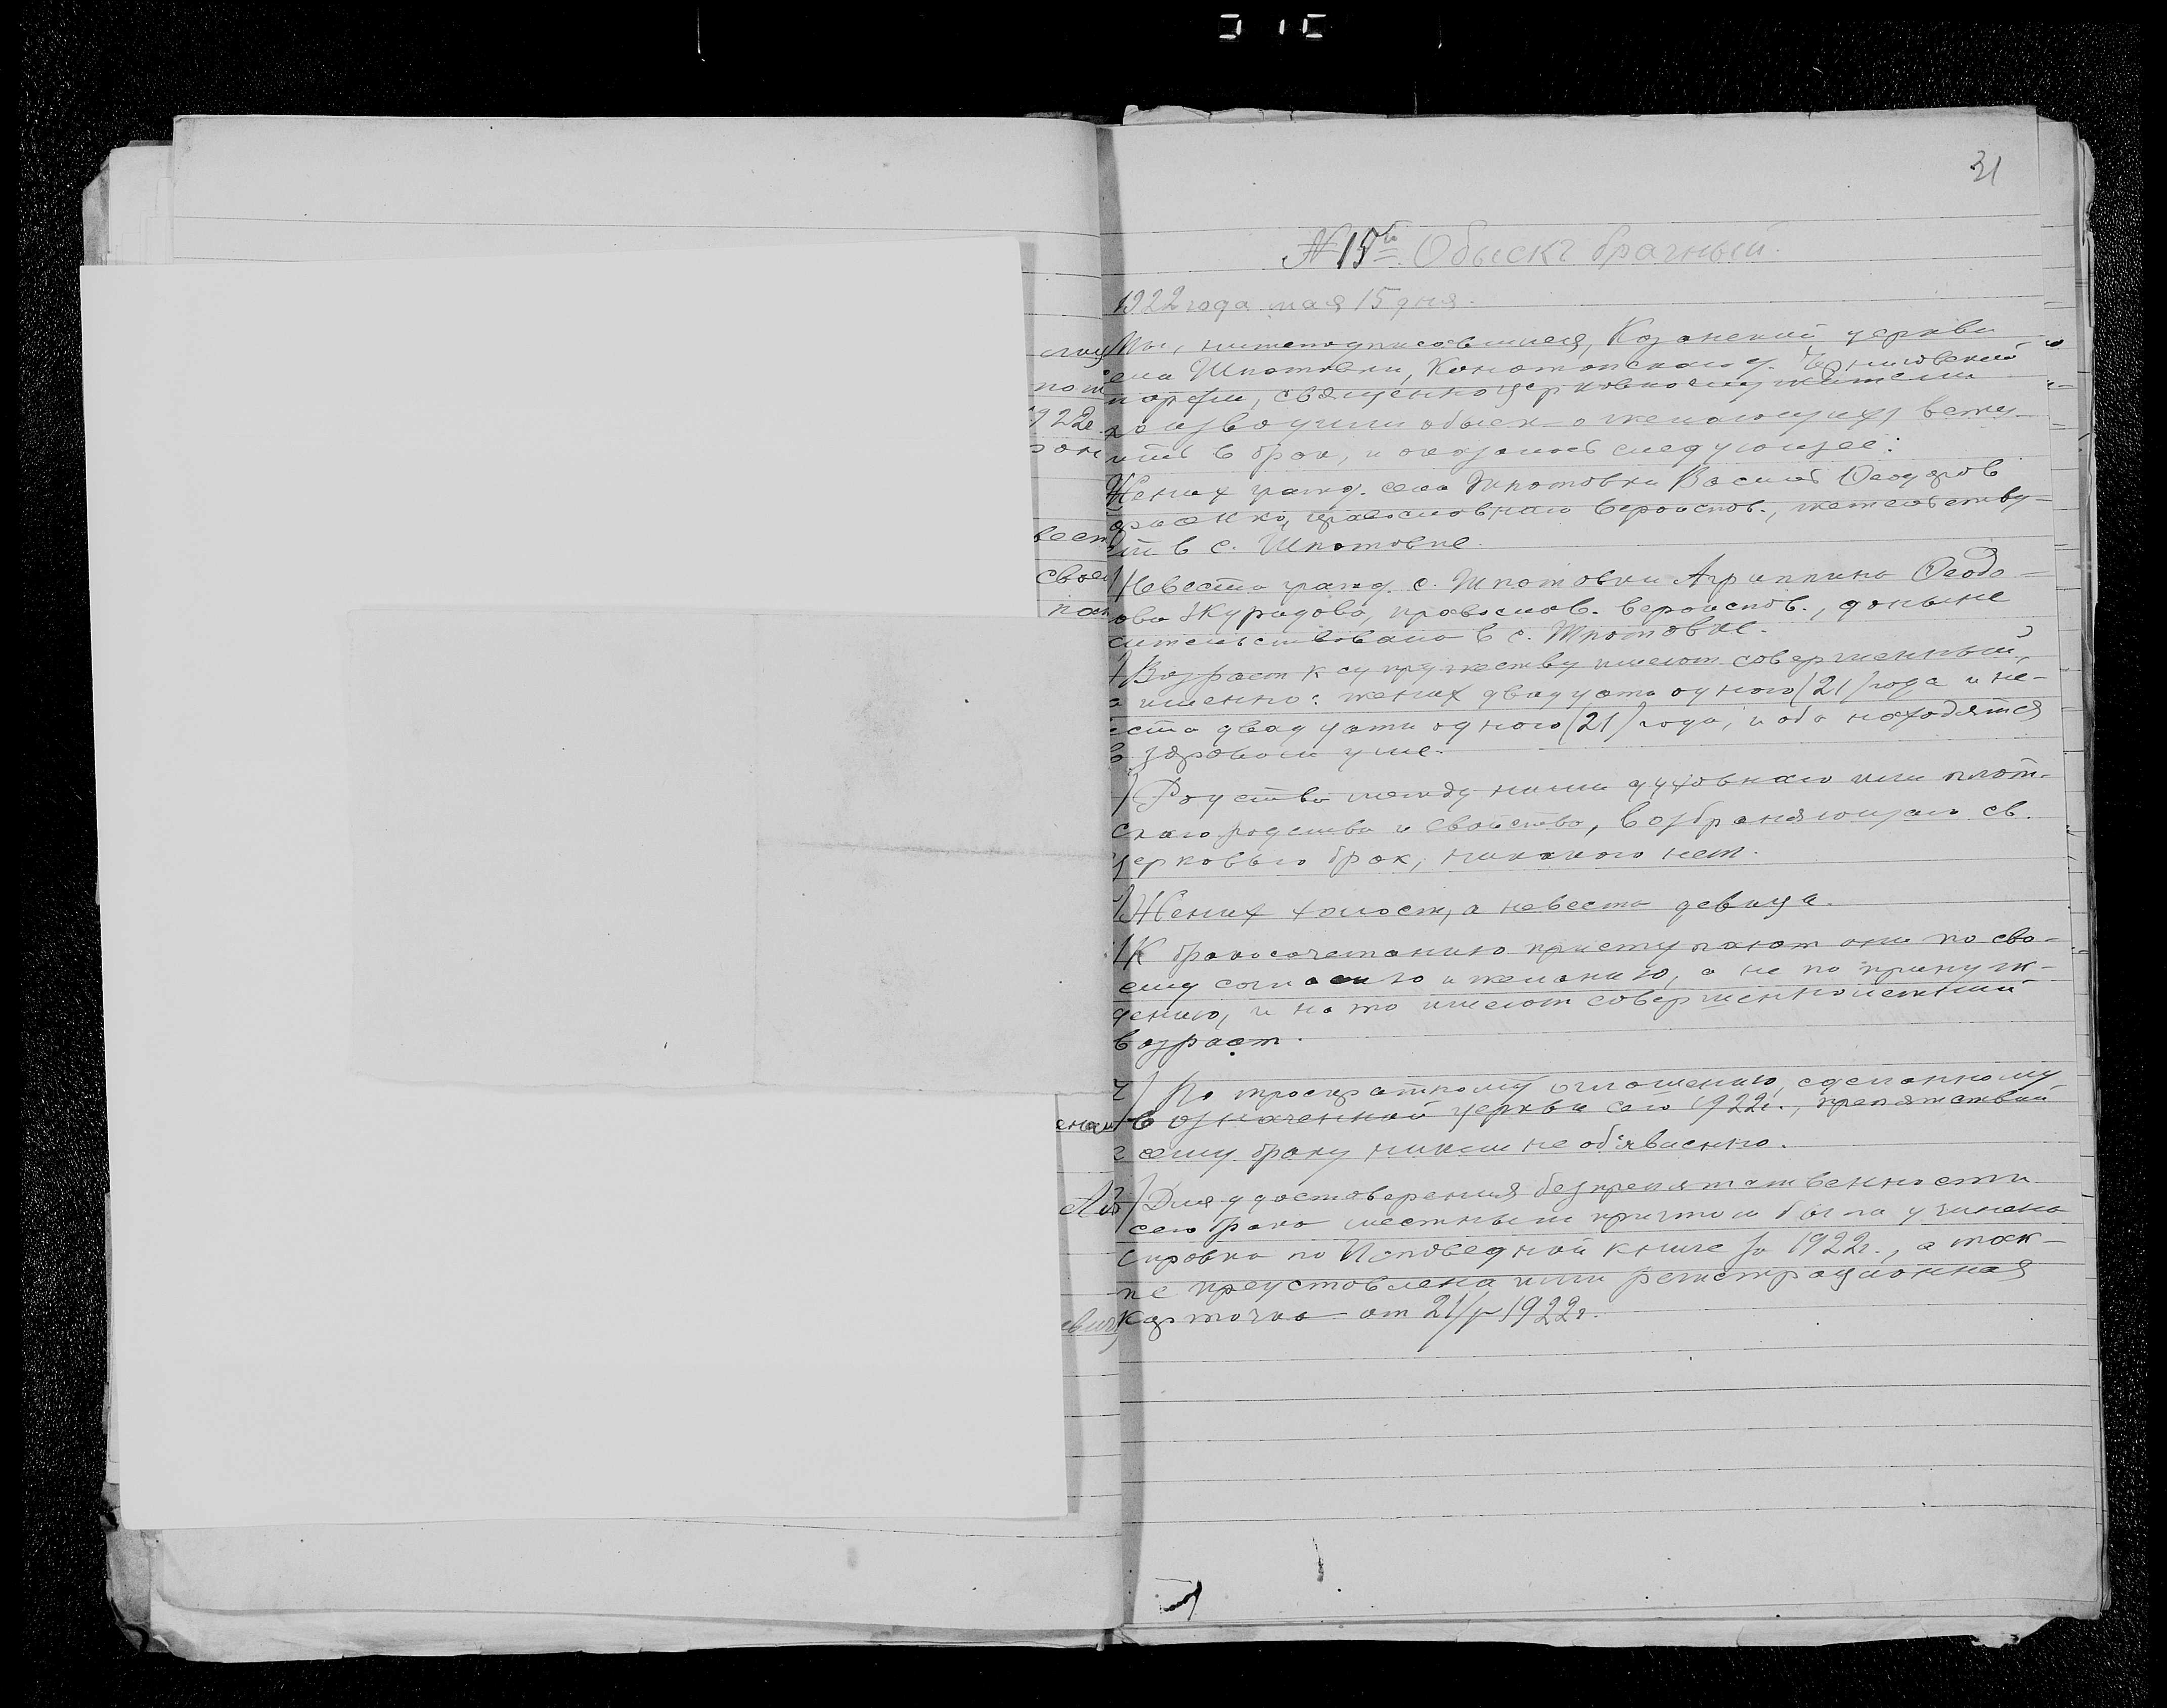 31
№ 15й Обыскъ брачный.
1922 года мая 15 дня.
Мы, нижеподписавшиеся, Казанской церкви
ела Шпотовки, Конотопского у. Черниговской
епархии, священноцерковнослужители
роизводили обыск о желающих всту-
ить в брак, и оказалось следующее:
Жених гражд. села Шпотовки Василь Феодоров
православнаго вероиспов., жительству-
ет в с. Шпотовке.
Невеста гражд. с. Шпотовки Агриппина Феодо-
ова Журидова, православ. вероиспов., доныне
жительствовала в с. Шпотовке.
) Возраст к супружеству имеют совершенный,
а именно: жених двадцати одного (21) года и не-
еста двадцати одного (21) года, и оба находятся
в здравом уме.
) Родства между ними духовнаго или плот-
скаго родства и свойства, возбраняющаго св.
церковью брак, никакого нет.
) Жених холост, а невеста девица.
) К бракосочетанию приступают они по сво-
ему согласию и желанию, а не по принуж-
дению, и на то имеют совершеннолетний
возраст.
) По троекратному оглашению, сделанному
в означенной церкви сего 1922г., препятствий
к сему браку никем не об'явлено.
) Для удостоверения безпрепятственности
сего брака местным причтом была учинена
справка по Исповедной книге за 1922г., а так-
же представлена ими регистрационная
карточка от 21/ 1922г.
пот
1922г.
вест
свое